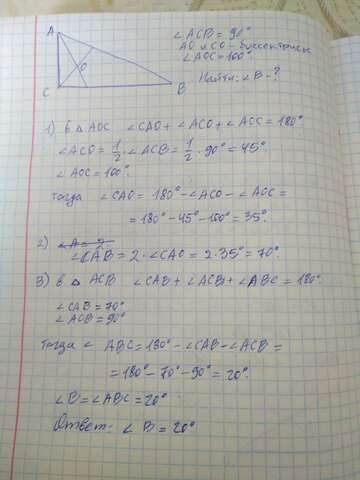 A
O
C
B
∠ACB = 90°
AO и CO - биссектрисы
∠AOC = 100°
Найти: ∠B - ?
1) в △ AOC ∠CAO + ∠ACO + ∠AOC = 180°
∠ACO = 1/2 · ∠ACB = 1/2 · 90° = 45°
∠AOC = 100°.
тогда ∠CAO = 180° - ∠ACO - ∠AOC =
= 180° - 45° - 100° = 35°
2) ∠A = ?
∠CAB = 2 · ∠CAO = 2 · 35° = 70°.
3) в △ ACB ∠CAB + ∠ACB + ∠ABC = 180°
∠CAB = 70°
∠ACB = 90°
тогда ∠ ABC = 180° - ∠CAB - ∠ACB =
= 180° - 70° - 90° = 20°.
∠B = ∠ABC = 20°
Ответ: ∠ B = 20°